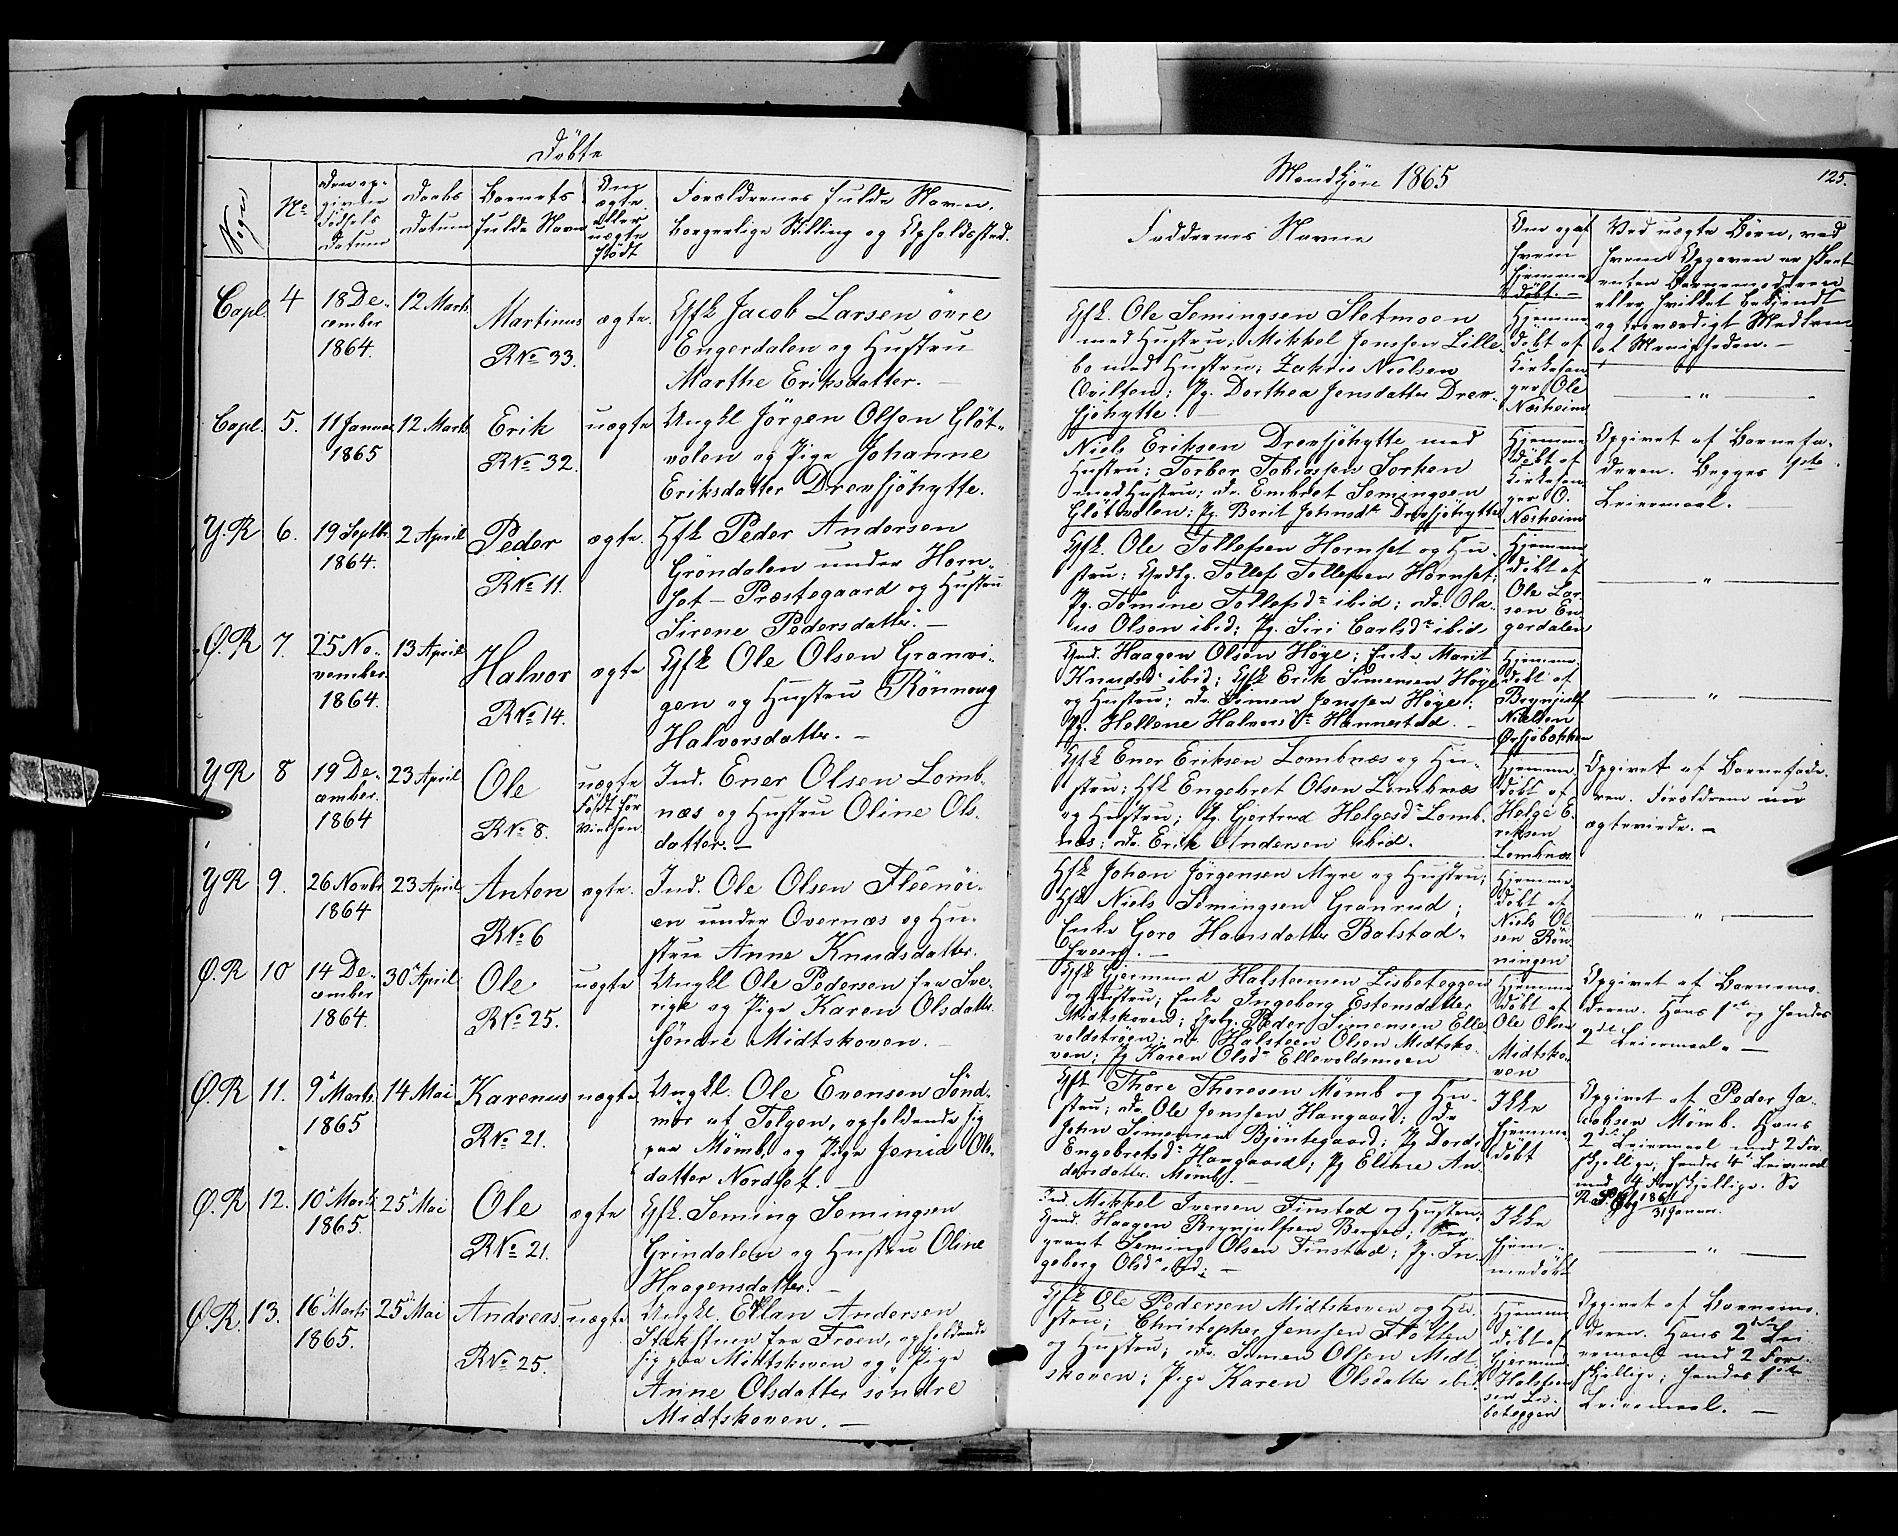 Døbte
Mandkjøn 1865
125.
Sogn
No
Den opgivne Fødsels Datum
Daabs Datum
Barnets fulde Navn
Om ægte eller uægte født
Forældrenes fulde Navn, borgerlige Stilling og Opholdssted.
Faddernes Navne
Om og af hvem hjemmedøbt. —
Ved uægte Børn, ved
hvem Opgaven er skeet
enten Barnemoderen
eller hvilket bekjendt
og troværdigt Medlem
af Menigheden. —
Capl. 4 18 De-
cember
1864.
12 Marts
Martinus
R No 33.
ægte.
Gfk Jacob Larsen øvre
Engerdalen og Hustru
Marthe Eriksdatter. —
Gfk. Ole Semingsen Sletmoen
med Hustru; Mikkel Jensen Lille-
bo med Hustru; Zakris Nielsen
Qvilten; Pg. Dorthea Jensdatter Drev-
sjøhytte. —
Hjemme
døbt af
Kirkesan-
ger Ole
Næsheim
— " —
Capl. 5. 11 Januar
1865
12 Marts
Erik
R No 32.
uægte
Ungkl Jörgen Olsen Gløt-
volen og Pige Johanne
Eriksdatter Drevsjøhytte.
Niels Eriksen Drevsjøhytte med
Hustru; Torber Tobiassen Sorken
med Hustru; do. Embret Semingsen
Gløtvolen; Pg. Berit Johnsdr Drevsjøhytte
Hjemme
døbt af
Kirkesan-
ger O.
Næsheim
Opgivet af Barnefa-
deren. Begges 1ste
Leiermaal. —
Y R 6. 19 Septbr
1864.
2 April
Peder
R No 11.
ægte.
Hfk Peder Andersen
Grøndalen under Horn-
set — Præstegaard og Hustru
Sirene Pedersdatter. —
Gfk. Ole Tollefsen Hornset og Hu-
stru; Grdbg. Tollef Tollefsen Hornset;
Pg. Tomine Tollefsdr ibid; do. Ola-
us Olsen ibid; Pg. Siri Carlsdr ibid
Hjemme
døbt af
Ole Lar-
sen En-
gerdalen
— " —
Ø. R 7. 25 No-
vember
1864.
13 April
Halvor
R No 14.
ægte
Gfk Ole Olsen Granvi-
gen og Hustru Rönnoug
Halvorsdatter. —
Gmd. Haagen Olsen Høye; Enke Marit
Knudsdr ibid; Gfk Erik Simensen Høye
og Hustru; do. Simen Jensen Høye;
Pg. Hellene Halvorsdr Hannestad. —
Hjemme-
døbt af
Brynjulf
Nielsen
Ørsjøbakken
— " —
Y R 8 19 De-
cember
1864
23 April
Ole
R No 8.
uægte
Født før
Vielsen
Ind. Ener Olsen Lomb-
næs og Hustru Oline Ols-
datter. —
Gfk Ener Eriksen Lombnæs og Hu-
stru; Hfk Engebret Olsen Lombnæs
og Hustru; Pg. Gjertrud Helgesdr Lomb-
næs; do. Erik Andersen ibid.
Hjemme-
døbt af
Helge E-
riksen
Lombnæs
Opgivet af Barnefade-
ren. Forældrene nu
ægteviede. —
Y R 9. 26 Novbr
1864
23 April
Anton
R No 6
ægte.
Ind. Ole Olsen Fleenöi-
en under Overnæs og Hu-
stru Anne Knudsdatter.
Hfk Johan Jörgensen Myre og Hustru;
Hfk Niels Semingsen Granrud;
Enke Goro Hansdatter Bolstad-
hveem. —
Hjemme-
døbt af
Niels Ol-
sen Røn-
ningen
— " —
Ø. R 10 14 De-
cember
1864.
30 April
Ole
R No 25.
uægte
Ungkl Ole Pedersen fra Sve-
rige og Pige Karen Olsdatter
söndre Midtskoven. —
Gfk Gjermund Halsteensen Lisbeteggen
og Hustru; Enke Ingeborg Estensdatter
Midtskoven; Grbg Peder Simensen Elle-
voldstrøen; do. Halsteen Olsen Midtsko-
ven; Pg Karen Olsdr Ellevoldsmoen
Hjemme
døbt af
Ole Olsen
Midtsko-
ven
Opgivet af Barnemo-
deren. Hans 1ste og hendes
2det Leiermaal. —
Ø. R 11. 9 Marts
1865
14 Mai
Karenus
R No 21.
uægte
Ungkl. Ole Evensen Sönd-
mör af Tolgen, opholdende sig
paa Mömb, og Pige Jenid Ols-
datter Nordset. —
Gfk Thore Thoresen Mömb og Hu-
stru; do Ole Jensen Haugaard; do
John Simensen Bjöntegaard; Pg Dordi
Engebretsdr Haugaard; Pg Elihse An-
dersdatter Mömb. —
Ikke
hjemme-
døbt
Opgivet af Peder Ja-
cobsen Mömb. Hans
2det Leiermaal med 2 For-
skjellige, hendes 4de Leiermaal
med 4 Forskjellige. Se
1861
31 Januar.
Ø. R 12. 10 Marts
1865.
25 Mai
Ole
R No 21.
ægte
Gfk. Seming Semingsen
Grindalen og Hustru Oline
Haagensdatter. —
Ind. Mikkel Iversen Finstad og Hustru;
Gmd. Haagen Brynjulfsen Berger; Ser-
geant Seming Olsen Finstad; Pg. In-
geborg Olsdr ibid. —
Ikke
hjem-
medøbt
— " —
Ø. R. 13. 16 Marts
1865.
25 Mai
Andreas
R No 25.
uægte
Ungkl. Ellan Andersen
Stækstuen fra Froen, opholdende
sig paa Midtskoven og Pige
Anne Olsdatter söndre
Midtskoven. —
Gfk Ole Pedersen Midtskoven og Hu-
stru; Christopher Jensen Flötten
og Hustru; do. Simen Olsen Midt-
skoven; Pige Karen Olsdatter ibid
Hjemme
døbt af
Gjermund
Halsteen-
sen Lis-
beteggen
Opgivet af Barnemo-
deren. Hans 2det Lei-
ermaal med 2 For-
skjellige; hendes 1ste
Leiermaal. —